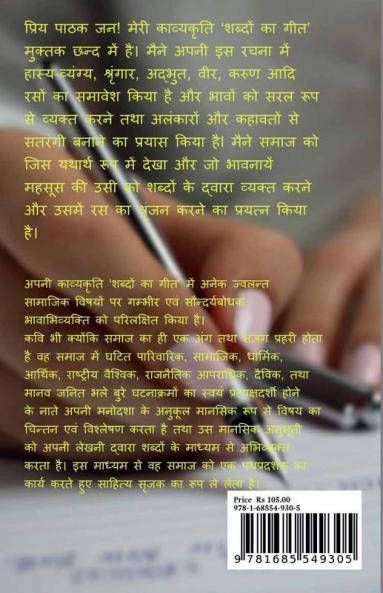 प्रिय पाठक जन! मेरी काव्यकृति ‘शब्दों का गीत’
मुक्तक छन्द में है। मैने अपनी इस रचना में
हास्य-व्यंग्य, श्रृंगार, अद्भुत, वीर, करुण आदि
रसों का समावेश किया है और भावों को सरल रूप
से व्यक्त करने तथा अलंकारों और कहावतों से
सतरंगी बनाने का प्रयास किया है। मैने समाज को
जिस यथार्थ रूप में देखा और जो भावनायें
महसूस की उसी को शब्दों के द्वारा व्यक्त करने
और उसमें रस का श्रृंजन करने का प्रयत्न किया
है।
अपनी काव्यकृति ‘शब्दों का गीत’ में अनेक ज्वलन्त
सामाजिक विषयों पर गम्भीर एवं सौन्दर्यबोधक
भावाभिव्यक्ति को परिलक्षित किया है।
कवि भी क्योंकि समाज का ही एक अंग तथा सजग प्रहरी होता
है वह समाज में घटित पारिवारिक, सामाजिक, धार्मिक,
आर्थिक, राष्ट्रीय वैश्विक, राजनैतिक आपराधिक, दैविक, तथा
मानव जनित भले बुरे घटनाक्रमों का स्वयं प्रत्यक्षदर्शी होने
के नाते अपनी मनोदशा के अनुकूल मानसिक रूप से विषय का
चिन्तन एवं विश्लेषण करता है तथा उस मानसिक अनुभूती
को अपनी लेखनी द्वारा शब्दों के माध्यम से अभिव्यक्त
करता है। इस माध्यम से वह समाज को एक पथप्रदर्शक का
कार्य करते हुए साहित्य सृजक का रूप ले लेता है।
Price Rs 105.00
978-1-68554-930-5
9 781685 549305